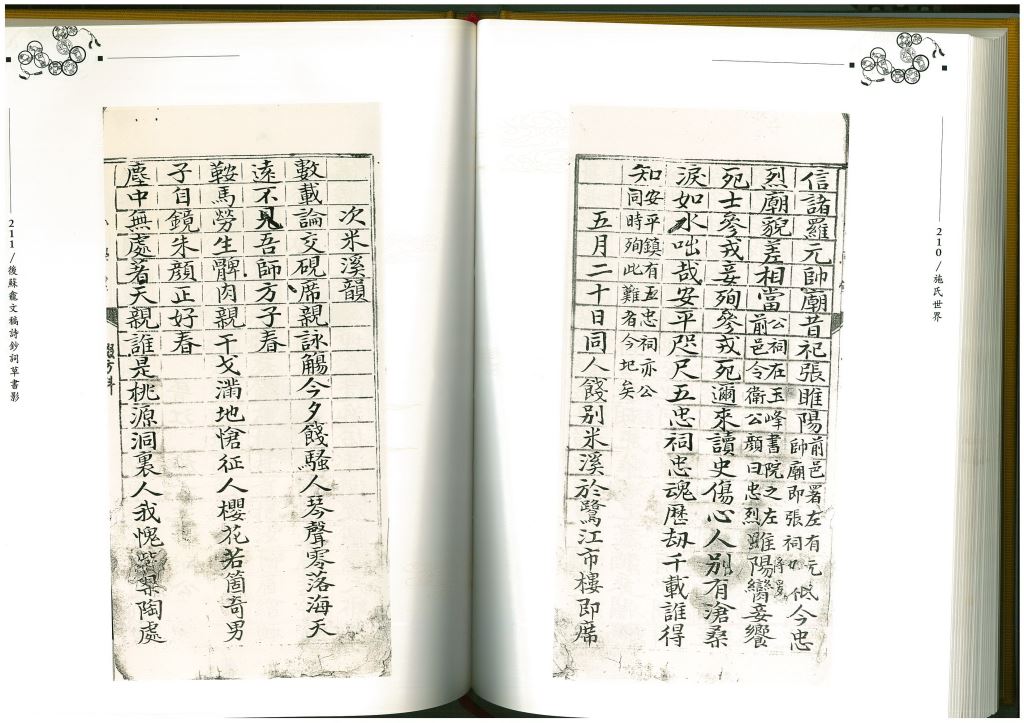 信諸羅元帥廟昔祀張睢陽前邑署左有元帥廟即張祠
今忠
烈廟貌差相當公祠在玉峰書院之左前邑令衛公顏曰忠烈睢陽臠妾饗
死士參戎妾殉參戎死邇來讀史傷心人別有滄桑
淚如水咄哉安平咫尺五忠祠忠魂歷劫千載誰得
知安平鎮有五忠祠亦公同時殉此難者今圮矣
五月二十日同人餞別米溪於鷺江市樓即席
210/施氏世界
次米溪韻
數載論交硯席親詠觴今夕餞騷人琴聲零落海天
遠不見吾師方子春
鞍馬勞生髀肉親干戈滿地愴征人櫻花若箇奇男
子自鏡朱顏正好春
塵中無處著天親誰是桃源洞裏人我愧柴桑陶處
211/後蘇龕文稿詩鈔詞草書影